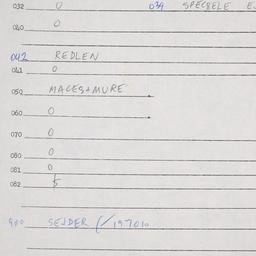 032 0 039 SPECBELE E
040 0
042 REDLEN
041 0
050 MACES+MURE
060 0
070 0
080 0
081 0
082 5
900 SEJDER (/197010